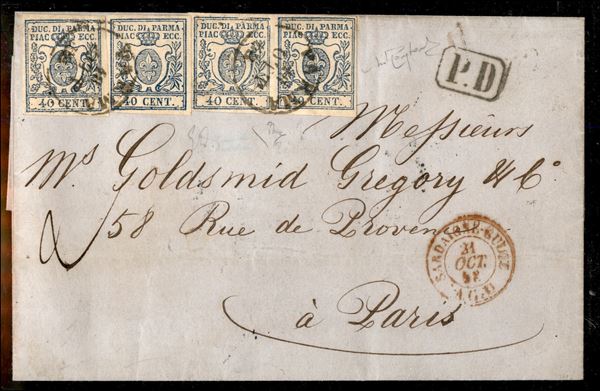 DUC. DI PARMA DUC. DI PARMA DUC. DI PARMA DUC. DI PARMA
PIAC ECC. PIAC ECC. PIAC ECC. PIAC ECC.
40 CENT. 40 CENT. 40 CENT. 40 CENT.
P.D
Messieurs
Mrs Goldsmid Gregory & Co
58 Rue de Provence
à Paris
SARDAIGNE-CULOZ
31
OCT.
58